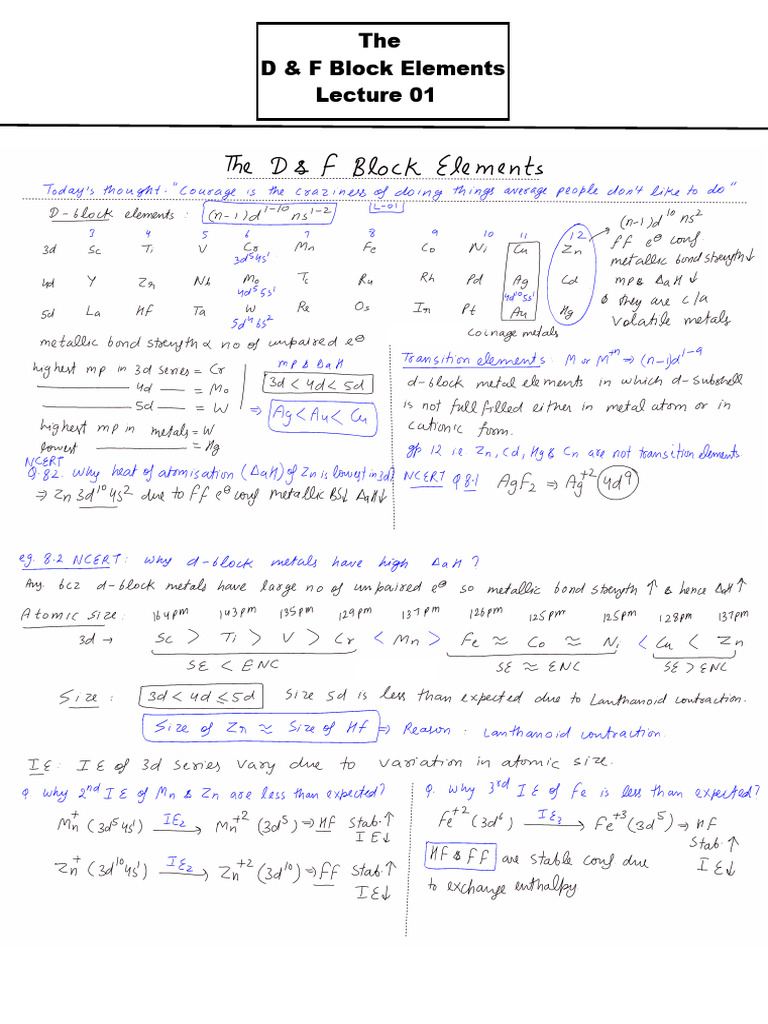 The
D & F Block Elements
Lecture 01
The D & f Block Elements
Today's thought - "Courage is the craziness of doing things average people don't like to do"
D-block elements : (n-1)d¹⁻¹⁰ ns¹⁻² L-01
3 4 5 6 7 8 9 10 11 12
3d Sc Ti V Cr Mn Fe Co Ni Cu Zn
3d⁵4s¹
4d Y Zr Nb Mo Tc Ru Rh Pd Ag Cd
4d⁵5s¹ 4d¹⁰5s¹
5d La Hf Ta W Re Os Ir Pt Au Hg
5d⁴6s²
Coinage metals
(n-1)d¹⁰ ns²
ff e⊖ conf.
metallic bond strength↓
mp & ΔaH ↓
& they are c/a
volatile metals
metallic bond strength ∝ no of unpaired e⊖
highest mp in 3d series = Cr
4d = Mo
5d = W
highest mp in metals = W
lowest = Hg
mp & ΔaH
3d < 4d < 5d
⇒ Ag < Au < Cu
Transition elements: M or M⁺ⁿ ⇒ (n-1)d¹⁻⁹
d-block metal elements in which d-subshell
is not full filled either in metal atom or in
cationic form.
gp 12 i.e. Zn, Cd, Hg & Cn are not transition elements
NCERT
Q.8.2. Why heat of atomisation (ΔaH) of Zn is lowest in 3d?
⇒ Zn 3d¹⁰4s² due to ff e⊖ conf metallic BS↓ ΔaH↓
NCERT Q 8.1 AgF₂ ⇒ Ag⁺² 4d⁹
eg. 8.2 NCERT: why d-block metals have high ΔaH ?
Any. bcz d-block metals have large no of unpaired e⊖ so metallic bond strength ↑ & hence ΔaH ↑
Atomic size: 164pm 143pm 135pm 129pm 137pm 126pm 125pm 125pm 128pm 137pm
3d → Sc > Ti > V > Cr < Mn > Fe ≈ Co ≈ Ni < Cu < Zn
SE < ENC SE ≈ ENC SE > ENC
Size : 3d < 4d ≤ 5d Size 5d is less than expected due to Lanthanoid contraction.
Size of Zr ≈ Size of Hf ⇒ Reason : Lanthanoid contraction.
IE: IE of 3d series vary due to variation in atomic size.
Q. why 2nd IE of Mn & Zn are less than expected?
Mn⁺ (3d⁵4s¹) IE₂ → Mn⁺² (3d⁵) ⇒ HF Stab.↑
IE↓
Zn⁺ (3d¹⁰4s¹) IE₂ → Zn⁺² (3d¹⁰) ⇒ ff Stab.↑
IE↓
Q. why 3rd IE of Fe is less than expected?
Fe⁺² (3d⁶) IE₃ → Fe⁺³ (3d⁵) ⇒ HF
Stab.↑
IE↓
HF & FF are stable conf due
to exchange enthalpy